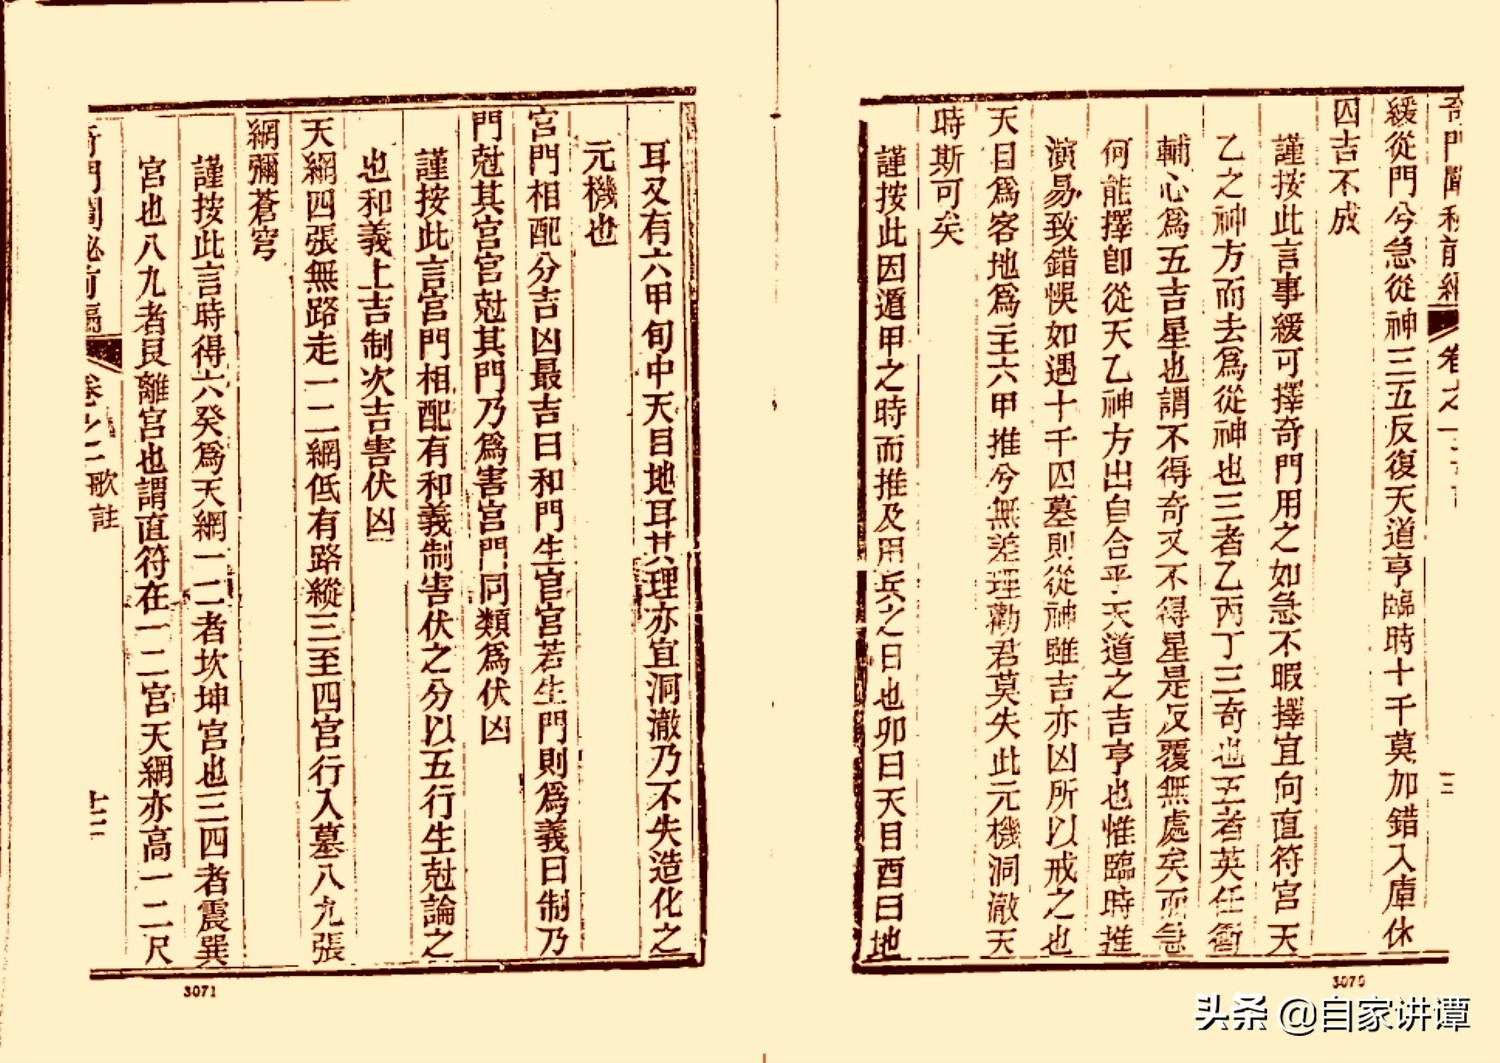 奇門闡秘前編 卷之二 三
緩從門兮急從神三五反復天道亨臨時十千莫加錯入庫休
囚吉不成
謹按此言事緩可擇奇門用之如急不暇擇宜向直符宮天
乙之神方而去為從神也三者乙丙丁三奇也五者英任衝
輔心為五吉星也謂不得奇又不得星是反覆無處矣而急
何能擇卽從天乙神方出自合乎天道之吉亨也惟臨時推
演易致錯悞如遇十千囚墓則從神雖吉亦凶所以戒之也
天目為客地為主六甲推兮無差理勸君莫失此元機洞澈天
時斯可矣
謹按此因遁甲之時而推及用兵之日也卯曰天目酉曰地
3070
耳又有六甲旬中天目地耳其理亦宜洞澈乃不失造化之
元機也
宮門相配分吉凶最吉曰和門生宮宮若生門則為義曰制乃
門尅其宮宮尅其門乃為害宮門同類為伏凶
謹按此言宮門相配有和義制害伏之分以五行生尅論之
也和義上吉制次吉害伏凶
天網四張無路走一二網低有路縱三至四宮行入墓八九張
網彌蒼穹
謹按此言時得六癸為天網一二者坎坤宮也三四者震巽
宮也八九者艮離宮也謂直符在一二宮天網亦高一二尺
奇門闡秘前編 卷之二 歌註 十二
3071
头条 @自家讲谭